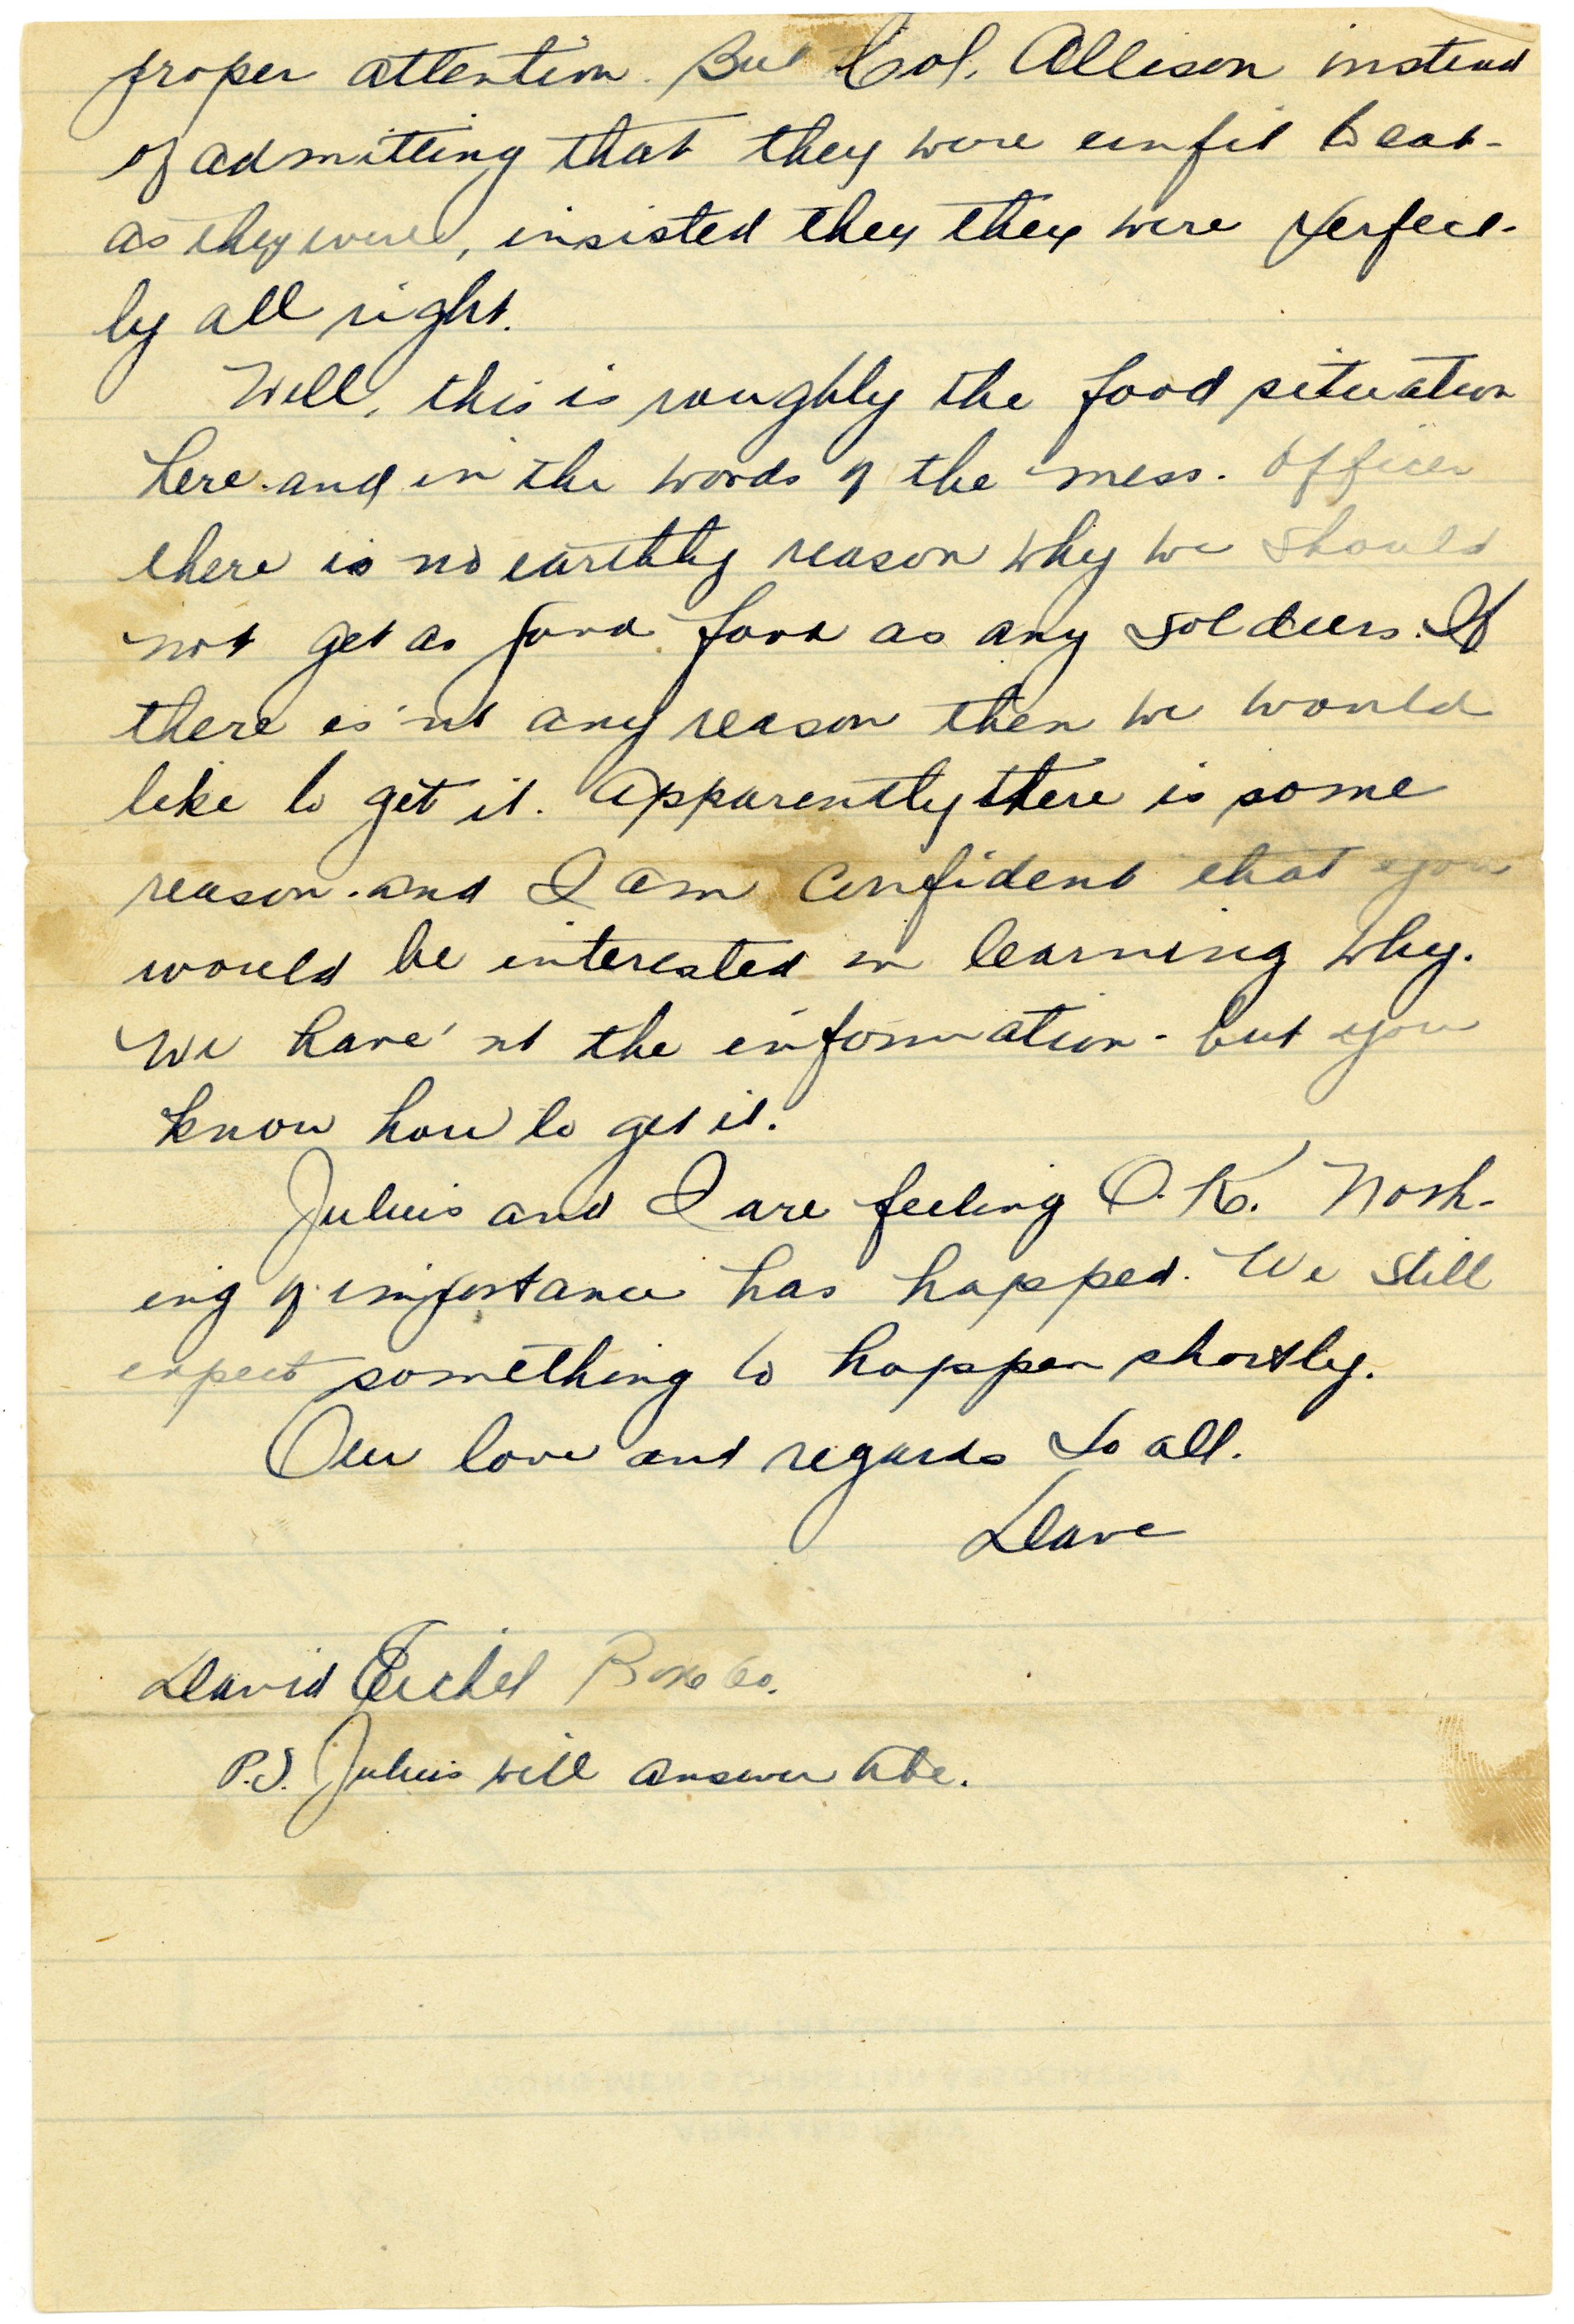 proper attention. But Col. Allison instead
of admitting that they were unfit to eat-
as they were, insisted they they were perfect-
ly all right.
Well, this is roughly the food situation
here and in the words of the mess. officer
there is no earthly reason why we should
not get as good food as any soldiers. If
there is'nt any reason then we would
like to get it. Apparently there is some
reason. and I am confident that you
would be interested in learning why.
We have'nt the information - but you
know how to get it.
Julius and I are feeling O.K. Noth-
ing of importance has happed. We still
expect something to happen shortly.
Our love and regards to all.
Dave
David Eichel
P.S. Julius will answer Abe.
YOUNG MEN'S CHRISTIAN ASSOCIATION